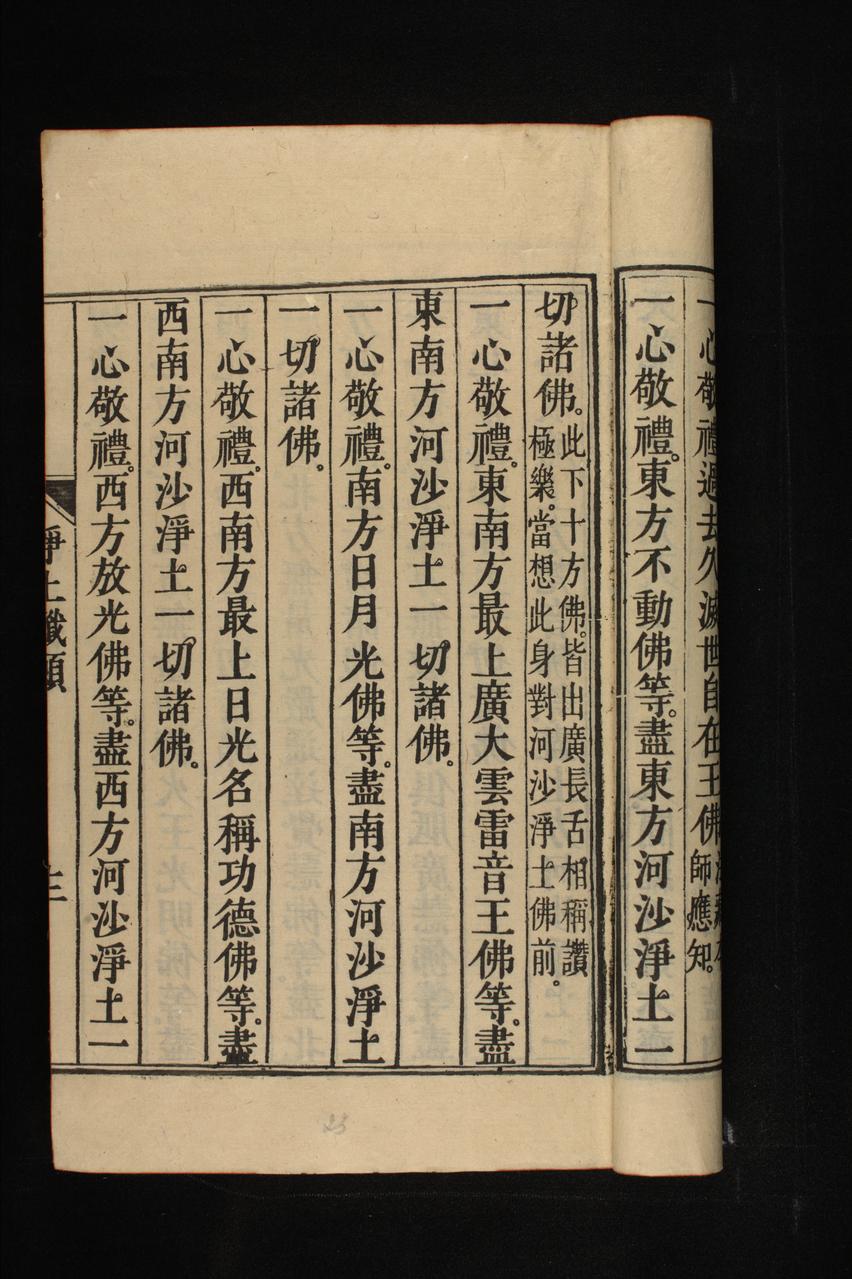 一心敬禮過去久滅世自在王佛
師應知。
一心敬禮。東方不動佛等。盡東方河沙淨土一
切諸佛。此下十方佛。皆出廣長舌相稱讚
極樂。當想此身對河沙淨土佛前。
一心敬禮。東南方最上廣大雲雷音王佛等。盡
東南方河沙淨土一切諸佛。
一心敬禮。南方日月光佛等。盡南方河沙淨土
一切諸佛。
一心敬禮。西南方最上日光名稱功德佛等。盡
西南方河沙淨土一切諸佛。
一心敬禮。西方放光佛等。盡西方河沙淨土一
淨土懺願
三